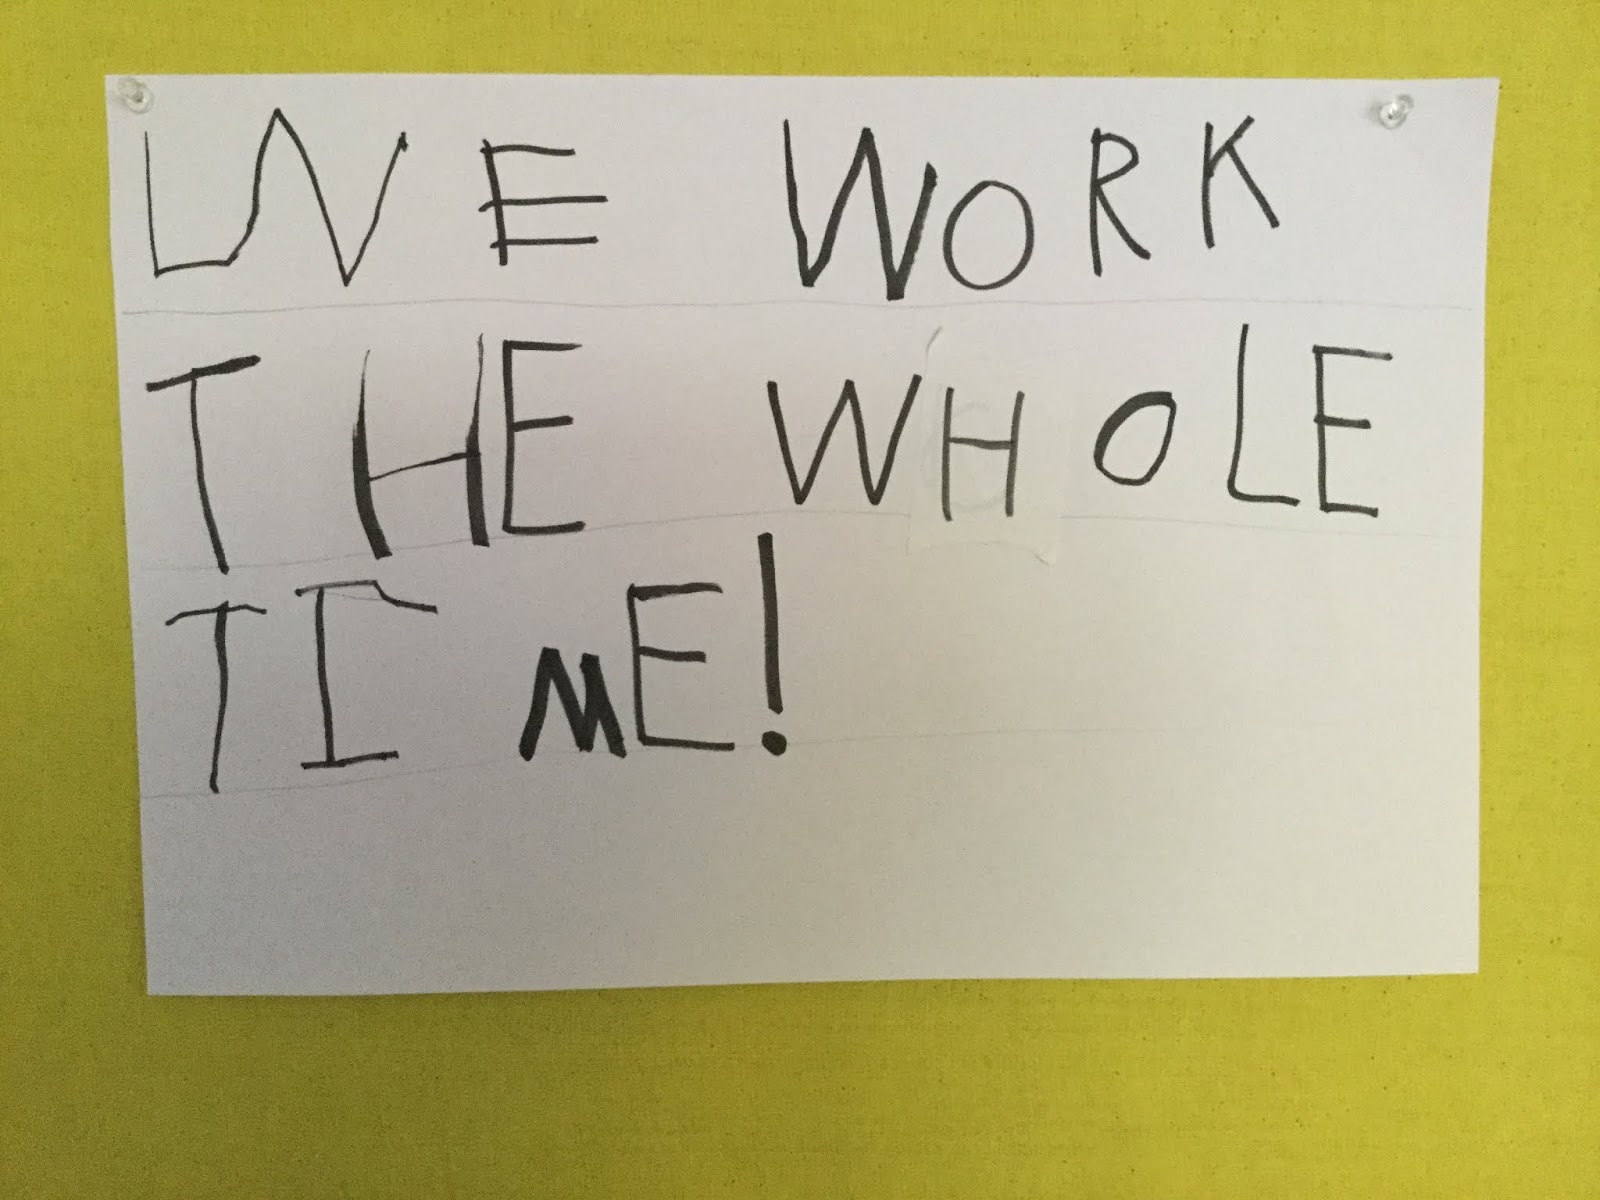 WE WORK
THE WHOLE
TIME!